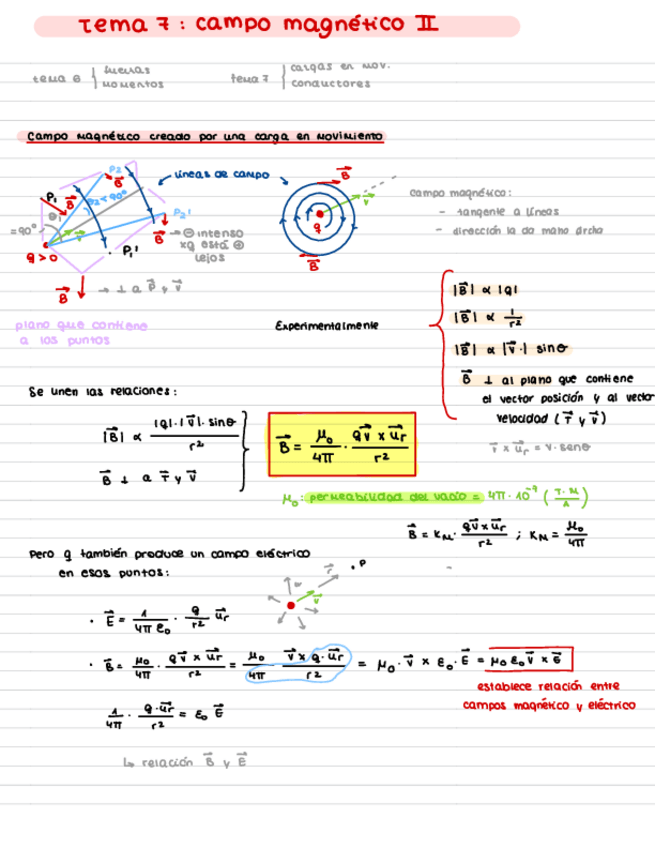 Tema 7: campo magnético II
tema 6 { fuerzas momentos
tema 7 { cargas en mov. conductores
Campo magnético creado por una carga en movimiento
P₂
B⃗
θ₂ < 90°
líneas de campo
P₁
B⃗
θ₁
= 90°
q > 0
v⃗
P₂'
B⃗
P₁'
⊖ intenso
xq está ⊕
lejos
B⃗ → ⊥ a P⃗ y v⃗
B⃗
v⃗
q
B⃗
campo magnético:
- tangente a líneas
- dirección la da mano drcha
plano que contiene
a los puntos
Experimentalmente
|B⃗| ∝ |q|
|B⃗| ∝ 1/r²
|B⃗| ∝ |v⃗| sinθ
B⃗ ⊥ al plano que contiene
el vector posición y al vector
velocidad (r⃗ y v⃗)
v⃗ × u⃗ᵣ = v · senθ
Se unen las relaciones:
|B⃗| ∝ |q|·|v⃗|·sinθ / r²
B⃗ ⊥ a r⃗ y v⃗
B⃗ = μ₀/4π · qv⃗ × u⃗ᵣ / r²
μ₀: permeabilidad del vacío = 4π·10⁻⁷ (T·M/A)
B⃗ = K_M · qv⃗ × u⃗ᵣ / r² ; K_M = μ₀/4π
Pero q también produce un campo eléctrico
en esos puntos:
r⃗
P
v⃗
· E⃗ = 1/4πε₀ · q/r² u⃗ᵣ
· B⃗ = μ₀/4π · qv⃗ × u⃗ᵣ / r² = μ₀/4π · v⃗ × q·u⃗ᵣ / r² = μ₀ · v⃗ × ε₀ · E⃗ = μ₀ε₀ v⃗ × E⃗
establece relación entre
campos magnético y eléctrico
1/4π · q·u⃗ᵣ / r² = ε₀ E⃗
↳ relación B⃗ y E⃗